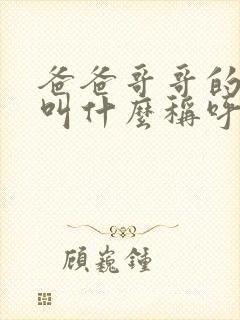 爸爸哥哥的
叫什麼稱呼
顧巍鍾